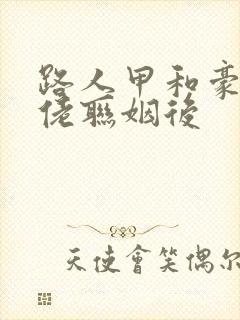 路人甲和豪
佬聯姻後
天使會笑偶尔